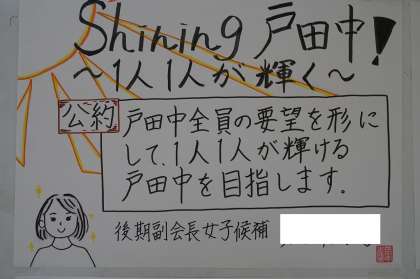 Shining 戸田中!
～1人1人が輝く～
公約
戸田中全員の要望を形に
して、1人1人が輝ける
戸田中を目指します.
後期副会長女子候補